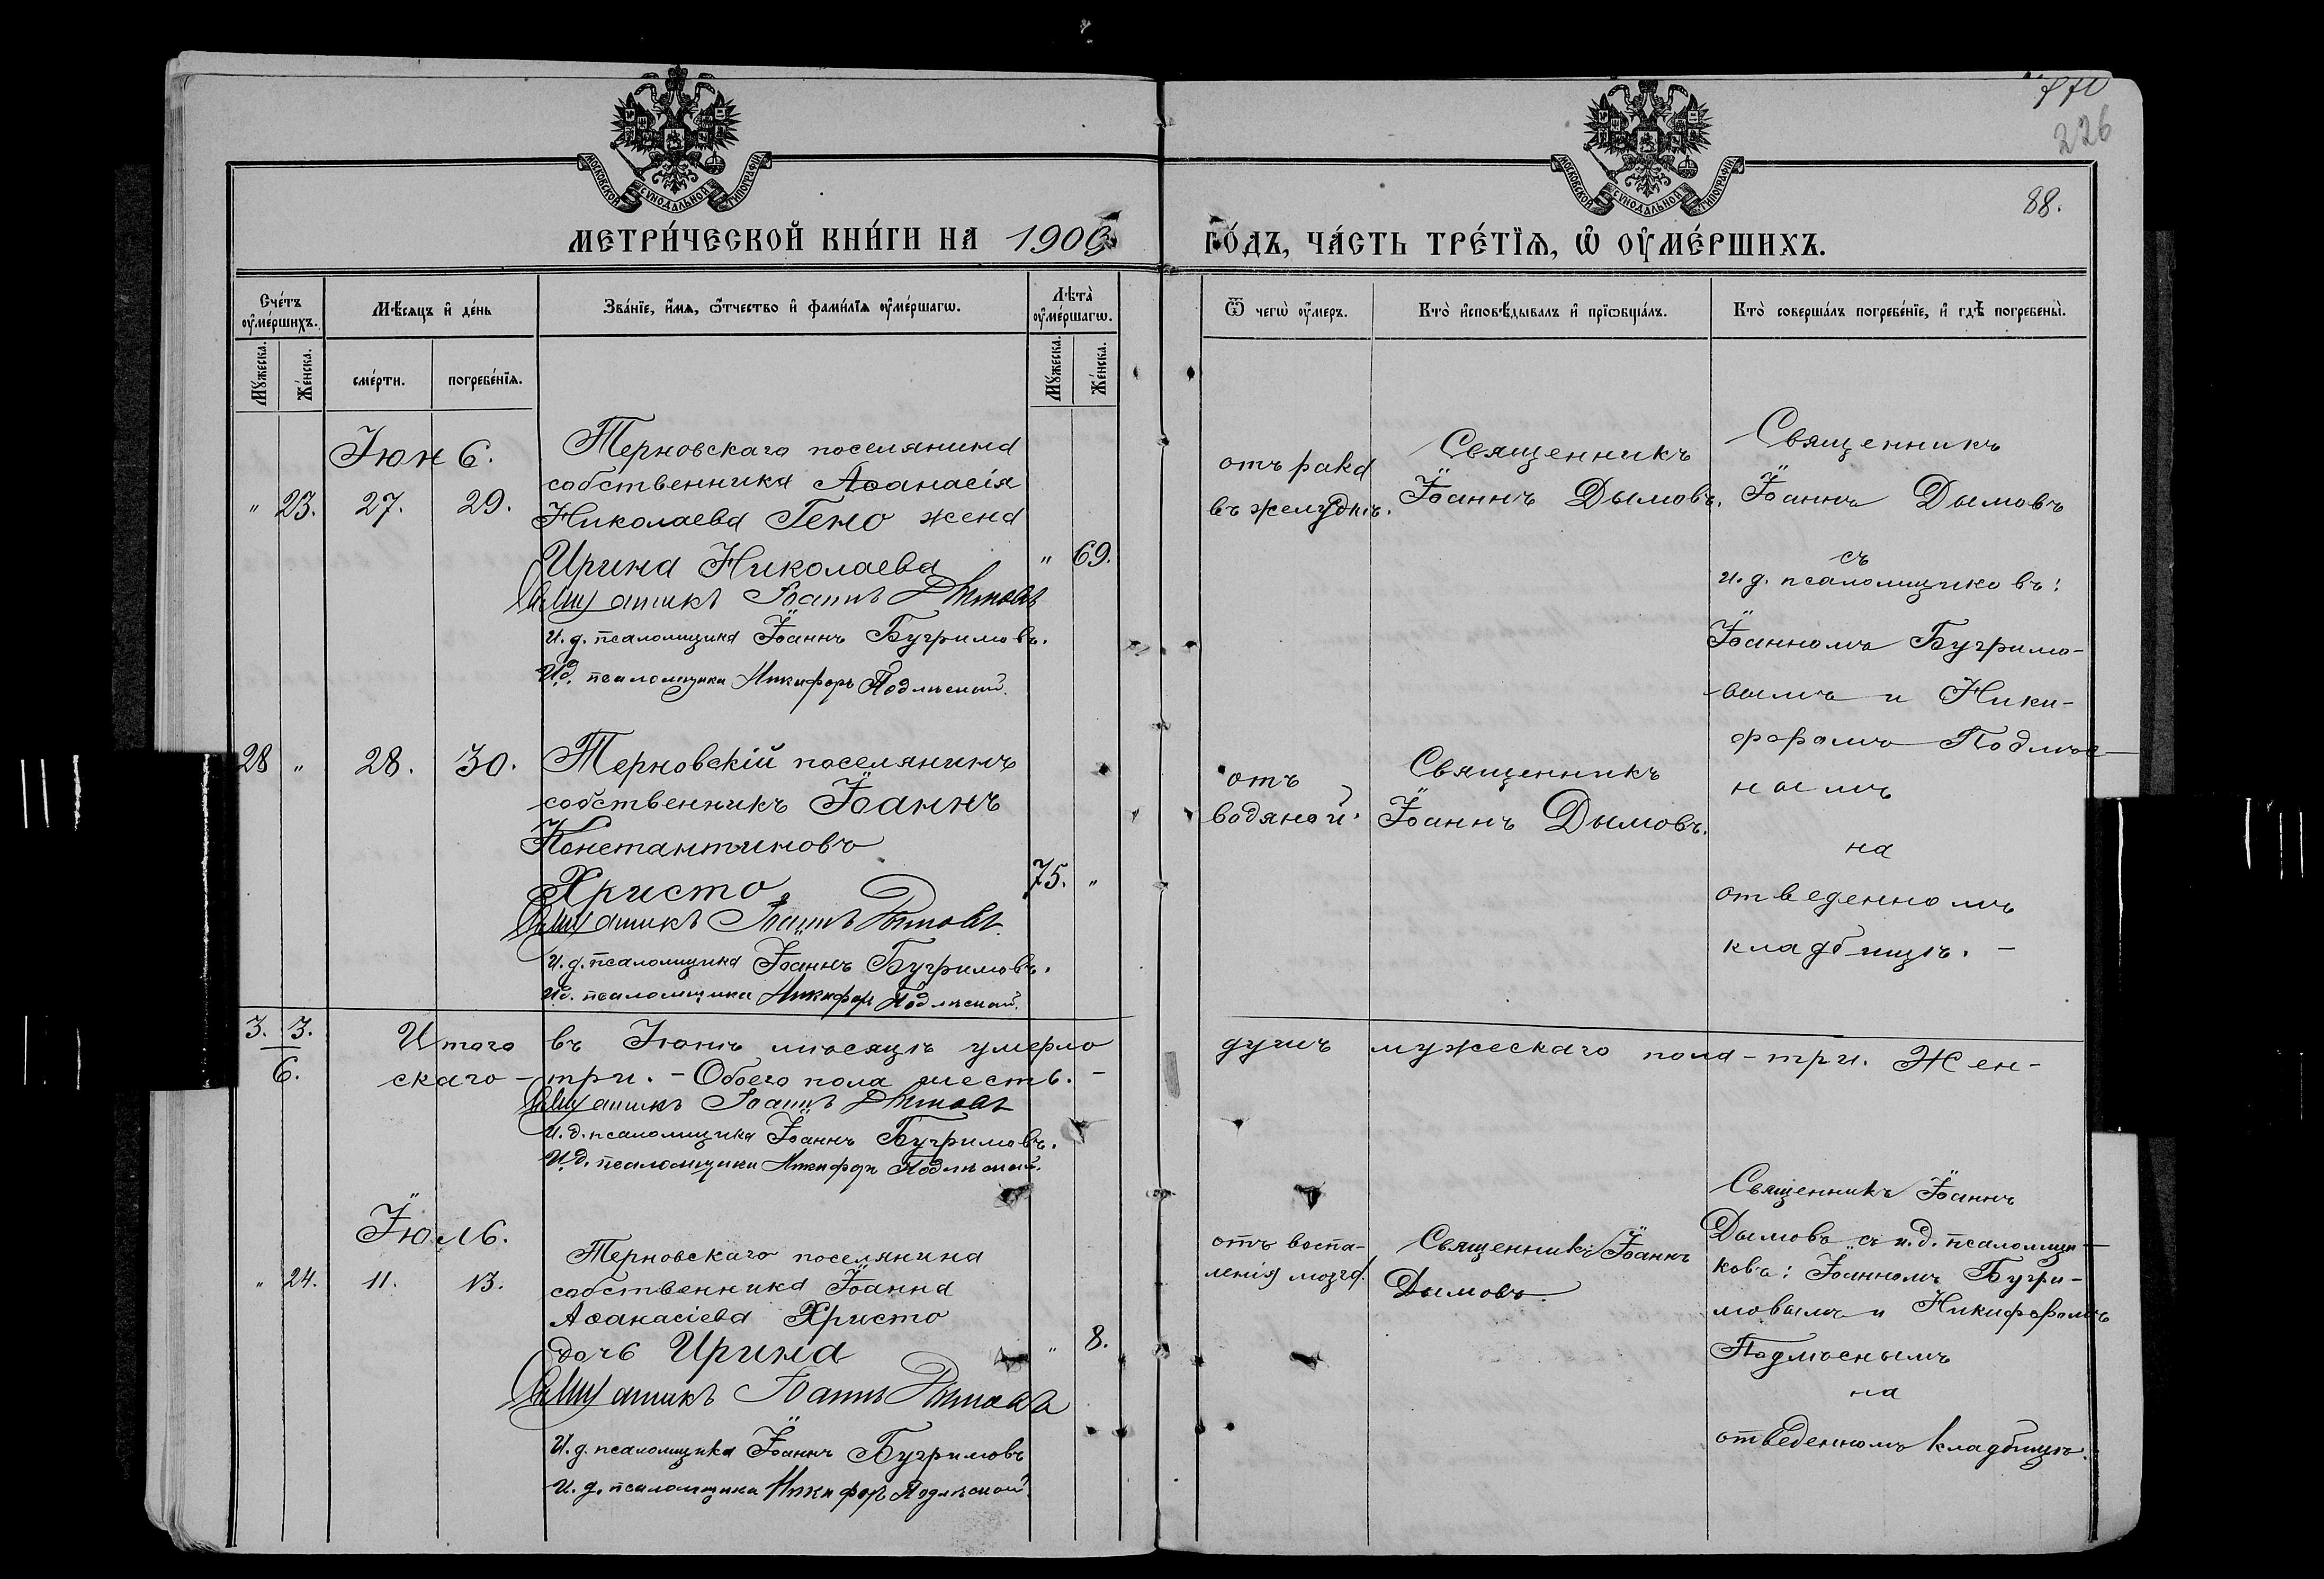 226
88.
МОСКОВСКОЙ СѴНОДАЛЬНОЙ ТИПОГРАФІИ
МОСКОВСКОЙ СѴНОДАЛЬНОЙ ТИПОГРАФІИ
МЕТРИ́ЧЕСКОЙ КНИ́ГИ НА 1906
ГО́ДЪ, ЧА́СТЬ ТРЕ́ТЇѦ, Ѡ҆ ОУ҆МЕ́РШИХЪ.
Сче́тъ оу҆ме́ршихъ.
Мѣ́сяцъ и҆ де́нь
Зва́нїе, и҆́мя, ѻ҆́тчество и҆ фами́лїя оу҆ме́ршагѡ.
Лѣта̀ оу҆ме́ршагѡ.
Ѿ чегѡ̀ оу҆́меръ.
Кто̀ и҆сповѣ́дывалъ и҆ прїѡбща́лъ.
Кто̀ соверша́лъ погребе́нїе, и҆ гдѣ̀ погребены̀.
Мꙋ́жеска.
Же́нска.
сме́рти.
погребе́нїя.
Мꙋ́жеска.
Же́нска.
Іюнь.
" 23. 27. 29.
Терновскаго поселянина
собственника Аѳанасія
Николаева Гено жена
Ирина Николаева " 69.
Священникъ Іоаннъ Дымовъ
И. д. псаломщика Іоаннъ Бугримовъ.
И.д. псаломщика Никифоръ Подлѣсный.
отъ рака
въ желудкѣ.
Священникъ
Іоаннъ Дымовъ.
Священникъ
Іоаннъ Дымовъ
съ
и. д. псаломщиковъ:
Іоанномъ Бугримо-
вымъ и Ники-
форомъ Подлѣс-
нымъ
на
отведенномъ
кладбищѣ. -
28 " 28. 30.
Терновскій поселянинъ
собственникъ Іоаннъ
Константиновъ
Христо. 75. "
Священникъ Іоаннъ Дымовъ.
И. д. псаломщика Іоаннъ Бугримовъ.
И.д. псаломщика Никифоръ Подлѣсный.
отъ
водяной.
Священникъ
Іоаннъ Дымовъ.
3. 3.
6.
Итого въ Іюнѣ мѣсяцѣ умерло душъ мужескаго пола - три. Жен-
скаго - три. - Обоего пола шесть. -
Священникъ Іоаннъ Дымовъ
И. д. псаломщика Іоаннъ Бугримовъ.
И.д. псаломщика Никифоръ Подлѣсный.
Іюль.
" 24. 11. 13.
Терновскаго поселянина
собственника Іоанна
Аѳанасіева Христо
дочь Ирина " 8.
Священникъ Іоаннъ Дымовъ
И. д. псаломщика Іоаннъ Бугримовъ
И. д. псаломщика Никифоръ Подлѣсный.
отъ воспа-
ленія мозга.
Священникъ Іоаннъ
Дымовъ.
Священникъ Іоаннъ
Дымовъ съ и. д. псаломщи-
ковъ: Іоанномъ Бугри-
мовымъ и Никифоромъ
Подлѣснымъ
на
отведенномъ кладбищѣ.